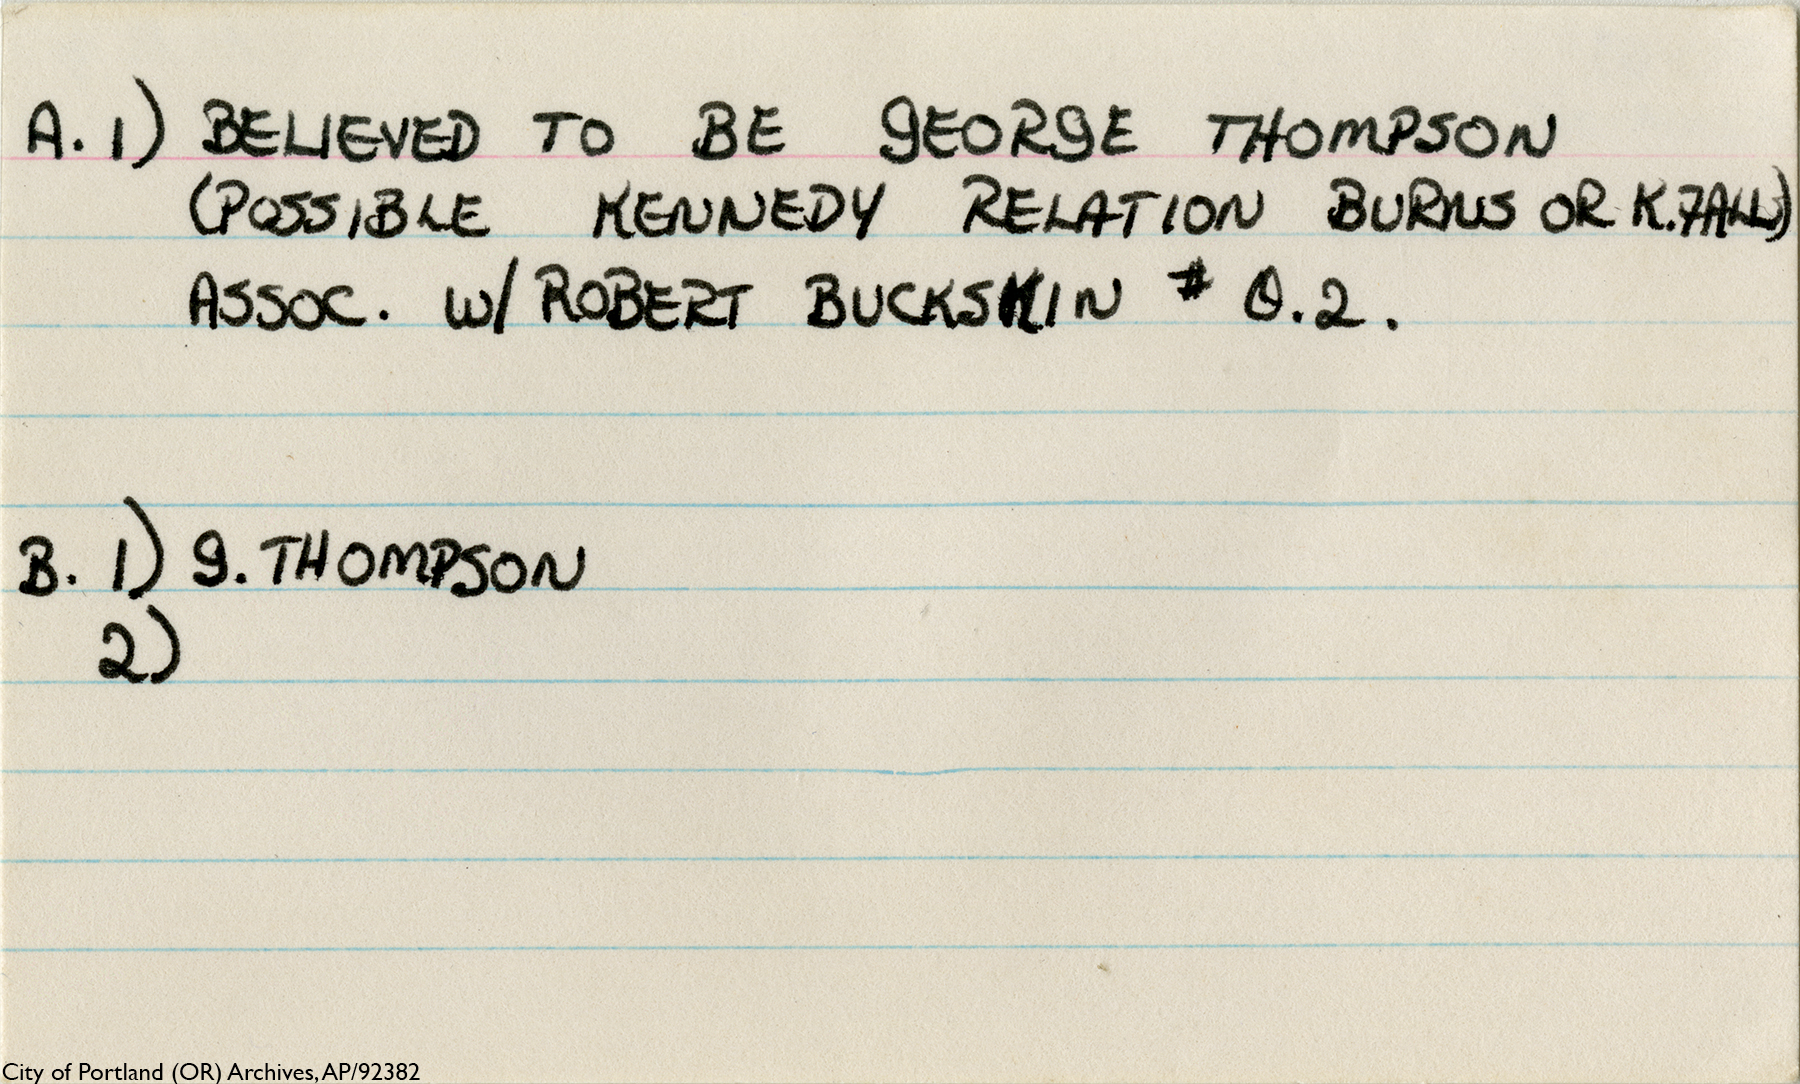 A. 1) BELIEVED TO BE GEORGE THOMPSON
(POSSIBLE KENNEDY RELATION BURNS OR K.FALLS)
ASSOC. W/ ROBERT BUCKSKIN # O.2.
B. 1) G. THOMPSON
2)
City of Portland (OR) Archives, AP/92382